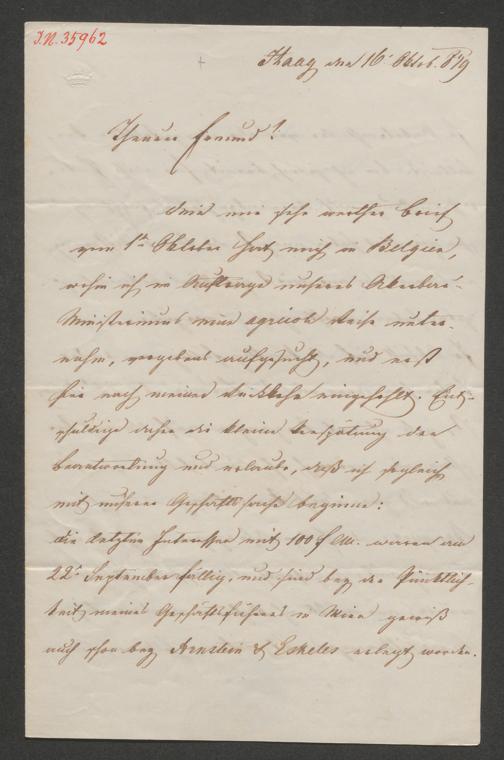 I.N. 35962
Haag den 16t Oktob. 879
Theurer Freund!
Dein mir sehr werther Brief
vom 1ten Oktober hat mich in Belgien,
wohin ich im Auftrage unseres Ackerbau-
Ministeriums eine agricole Reise unter-
nahm, vergebens aufgesucht, und erst
hier nach meiner Rückkehr eingeholt. Ent-
schuldige daher die kleine Verspätung der
Beantwortung und erlaube, daß ich sogleich
mit unserer Geschäftssache beginne:
Die letzten Interessen mit 100 f CM. waren am
22t September fällig, und sind bey der Pünktlich-
keit meines Geschäftsführers in Wien gewiß
auch schon bey Arnstein & Eskeles erlegt worden.